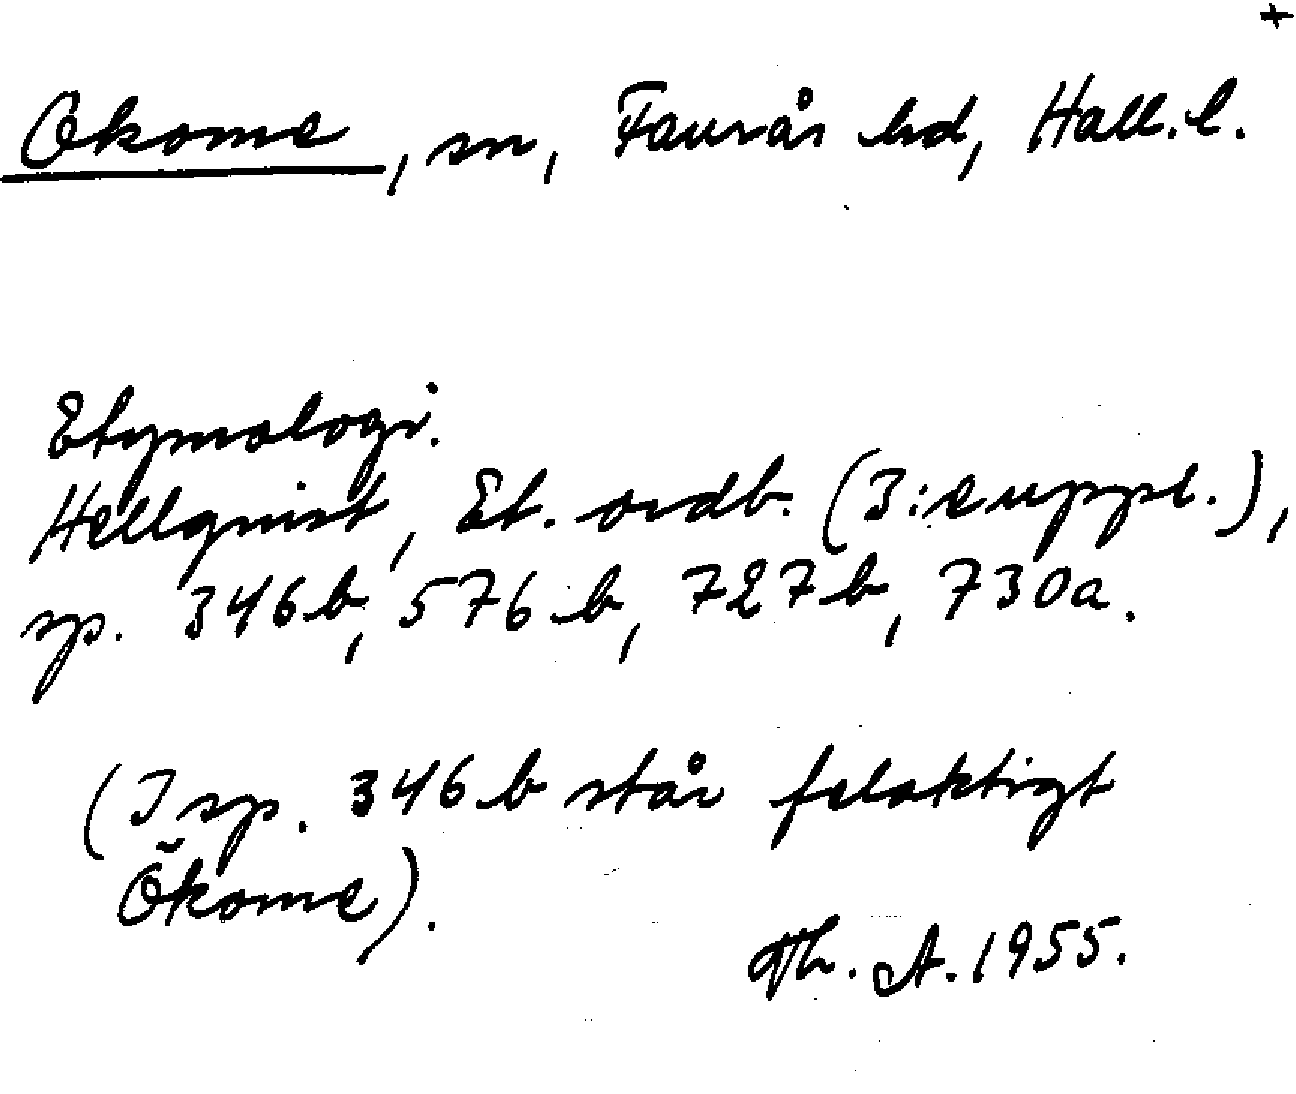 +
Okome, sn, Faurås hd, Hall. l.
Etymologi.
Hellquist, Et. ordb. (3:e uppl.),
sp. 346 b, 576 b, 727 b, 730 a.
(I sp. 346 b står felaktigt
Ökome).
Th. A. 1955.